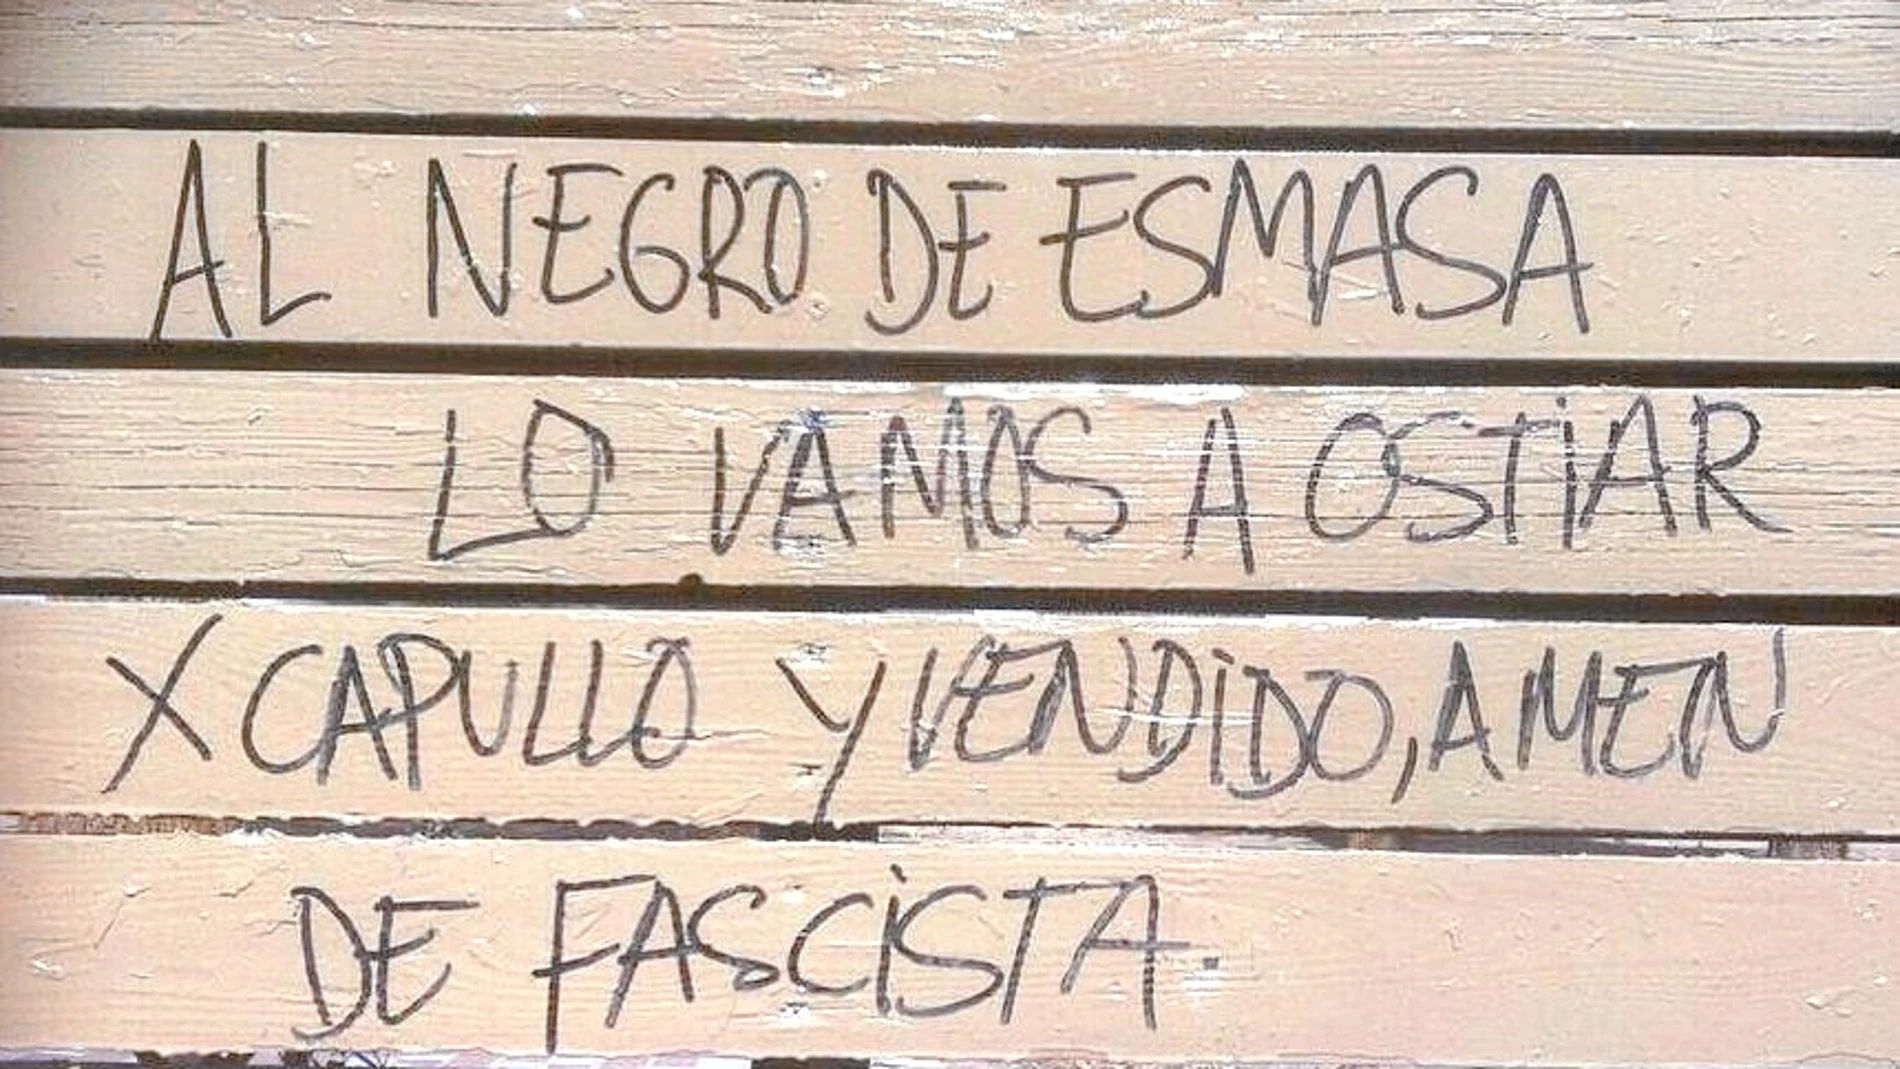 AL NEGRO DE ESMASA
LO VAMOS A OSTiAR
X CAPULLO Y VENDiDO, AMEN
DE FASCiSTA.